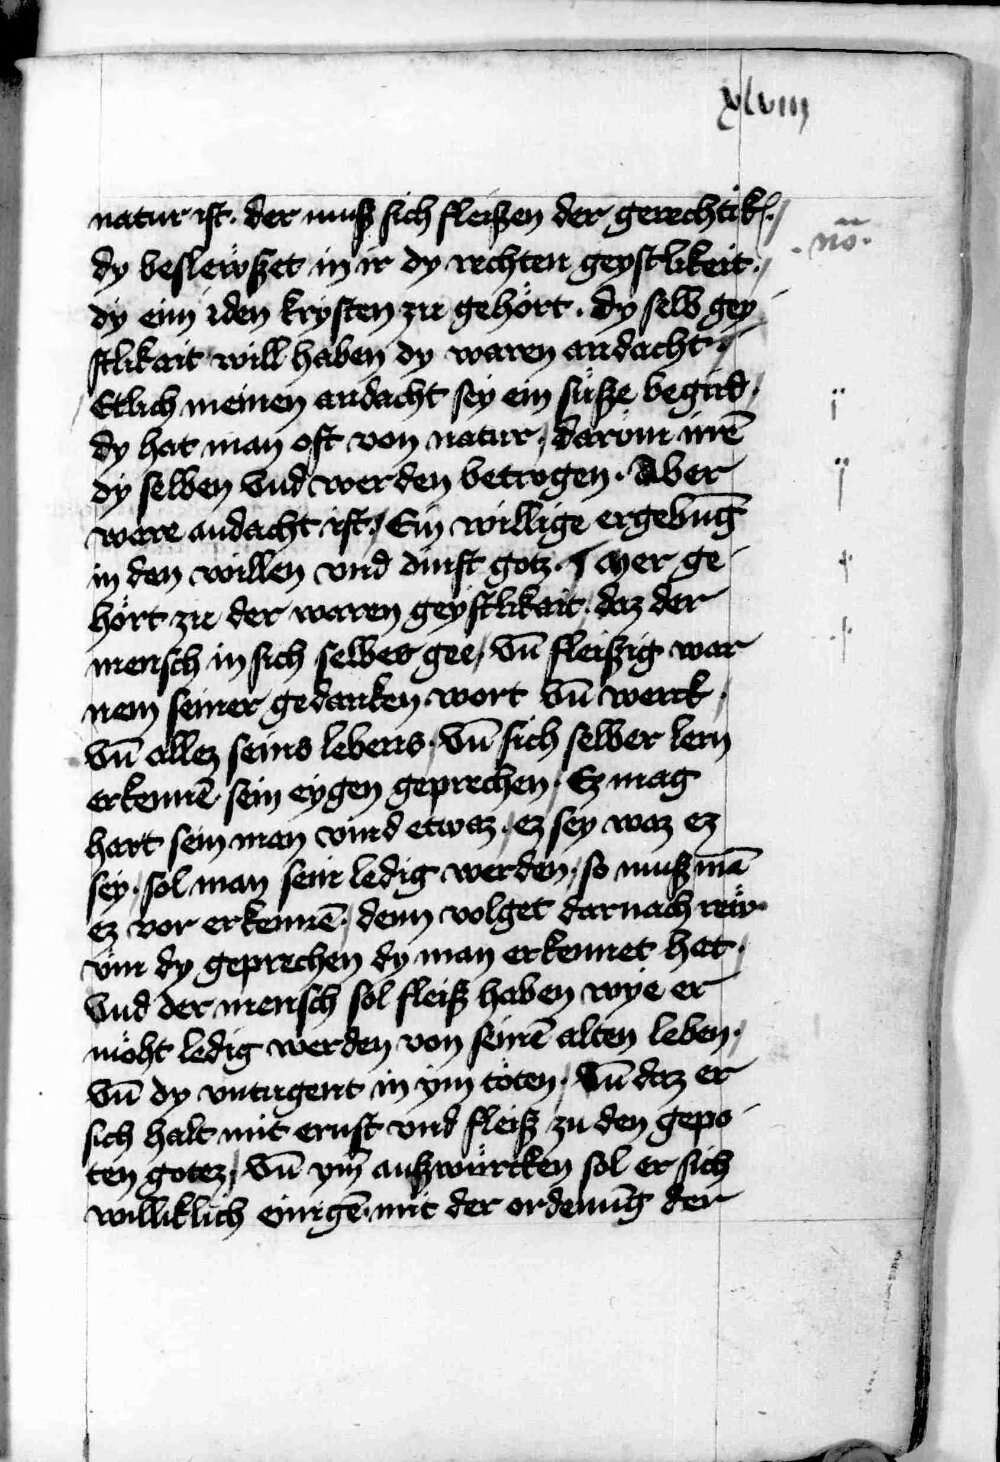 xlviij
natur ist. der muß sich fleißen der gerechtik.
no.
dy beslewßet in ir dy rechten geystlikeit.
dy eim iden krysten zu gehört. dy selb gey
stlikait will haben dy waren andacht
Etlich meinen andacht sey ein süsze begird.
dy hat man oft von natur, darvm irrē
dy selben vnd werden betrogen. Aber
ware andacht ist, Ein willige ergebūg
in den willen vnd dinst gotz. ¶ Mer ge
hört zu der waren geystlikait, daz der
mensch in sich selbes gee, vn̄ fleißig war
nem seiner gedanken wort vn̄ werck,
vn̄ allez seins lebens, vn̄ sich selber lern
erkennē sein eygen geprechen, Ez mag
hart sein man vind etwaz, ez sey waz ez
sey, sol man sein ledig werden, so muß mā
ez vor erkennē, denn volget darnach rew
vm dy geprechen dy man erkennet het,
vnd der mensch sol fleiß haben wye er
möht ledig werden von seinē alten leben,
vn̄ dy vntugent in ym töten, vn̄ daz er
sich halt mit ernst vnd fleiß zu den gepo
ten gotez, vn̄ ym̄ außwürcken sol er sich
williklich einigē mit der ordenūg der